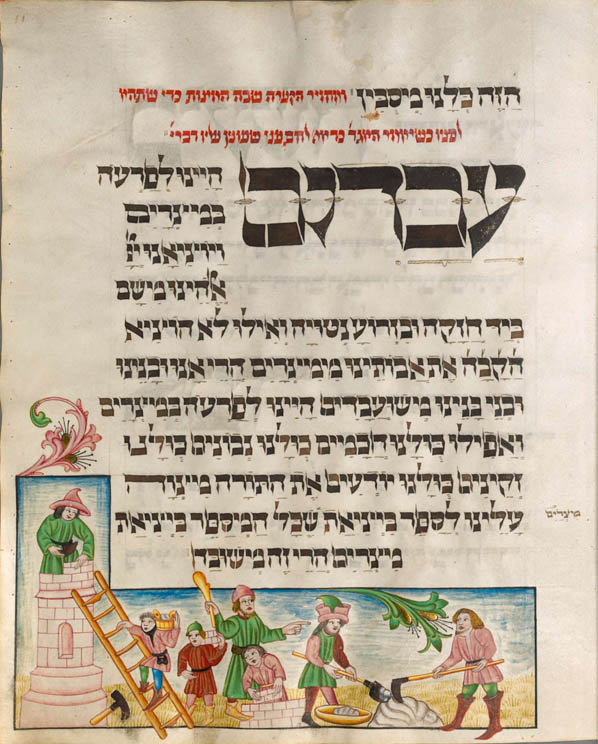 הזה כלנו מסבין ויחזיר הקערה שבה המצות כדי שתהיו
עבדים היינו לפרעה
במצרים
ויוציאנו יי
אלהינו משם
ביד חזקה ובזרוע נטויה ואילו לא הוציא
הקבה את אבותינו ממצרים הרי אנו ובנינו
ובני בנינו משועבדים היינו לפרעה במצרים
ואפילו כולנו חכמים כולנו נבונים כולנו
זקנים כולנו יודעים את התורה מצוה
עלינו לספר ביציאת שכל המספר ביציאת
מצרים
מצרים הרי זה משובח